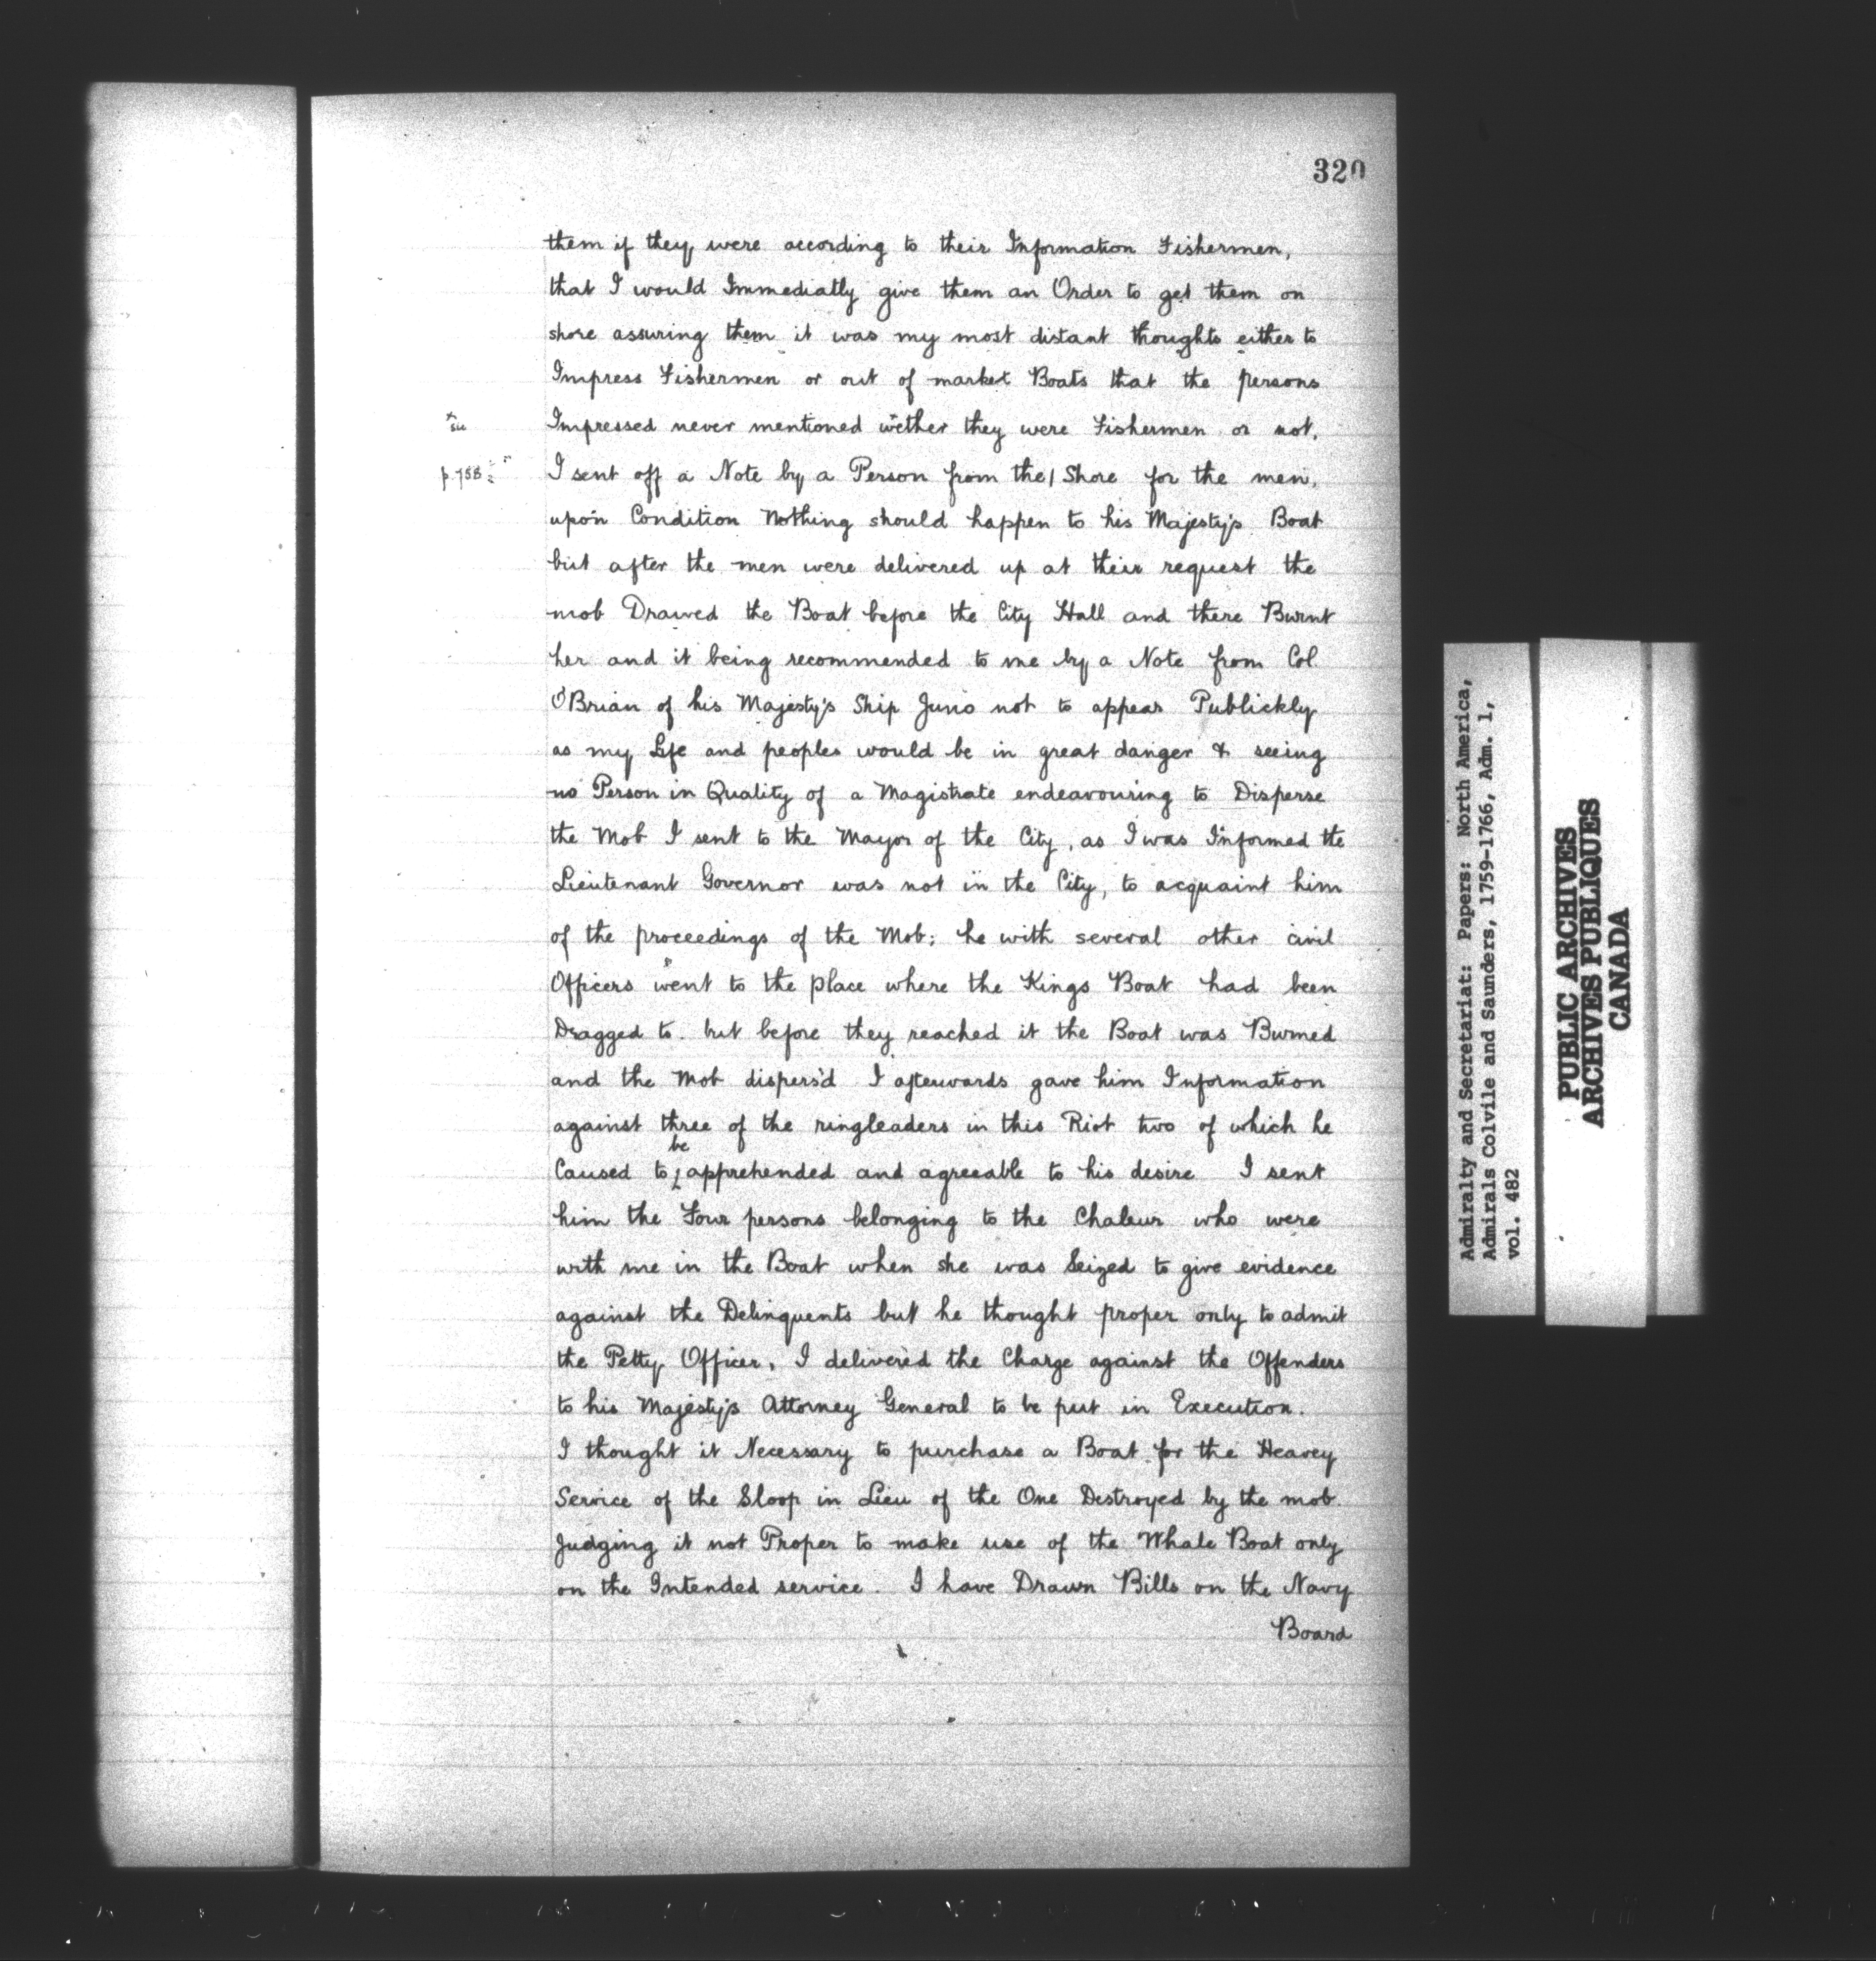 320
them if they were according to their Information Fishermen,
that I would Immediatly give them an Order to get them on
shore assuring them it was my most distant thoughts either to
Impress Fishermen or out of market Boats that the persons
x sic
Impressed never mentioned wether they were Fishermen or not,
p. 758
I sent off a Note by a Person from the/ Shore for the men,
upon Condition Nothing should happen to his Majesty's Boat
but after the men were delivered up at their request the
mob Drawed the Boat before the City Hall and there Burnt
her and it being recommended to me by a Note from Col.
O'Brian of his Majesty's Ship Juno not to appear Publickly
as my Life and peoples would be in great danger & seeing
no Person in Quality of a Magistrate endeavouring to Disperse
the Mob I sent to the Mayor of the City, as I was Informed the
Lieutenant Governor was not in the City, to acquaint him
of the proceedings of the Mob; he with several other civil
Officers went to the place where the Kings Boat had been
Dragged to. but before they reached it the Boat was Burned
and the Mob dispers'd I afterwards gave him Information
against three of the ringleaders in this Riot two of which he
Caused to be apprehended and agreeable to his desire I sent
him the Four persons belonging to the Chaleur who were
with me in the Boat when she was Seized to give evidence
against the Delinquents but he thought proper only to admit
the Petty Officer, I delivered the Charge against the Offenders
to his Majesty's Attorney General to be put in Execution.
I thought it Necessary to purchase a Boat for the Heavey
Service of the Sloop in Lieu of the One Destroyed by the mob.
Judging it not Proper to make use of the Whale Boat only
on the Intended service. I have Drawn Bills on the Navy
Board
Admiralty and Secretariat: Papers: North America,
Admirals Colvile and Saunders, 1759-1766, Adm. 1,
vol. 482
PUBLIC ARCHIVES
ARCHIVES PUBLIQUES
CANADA